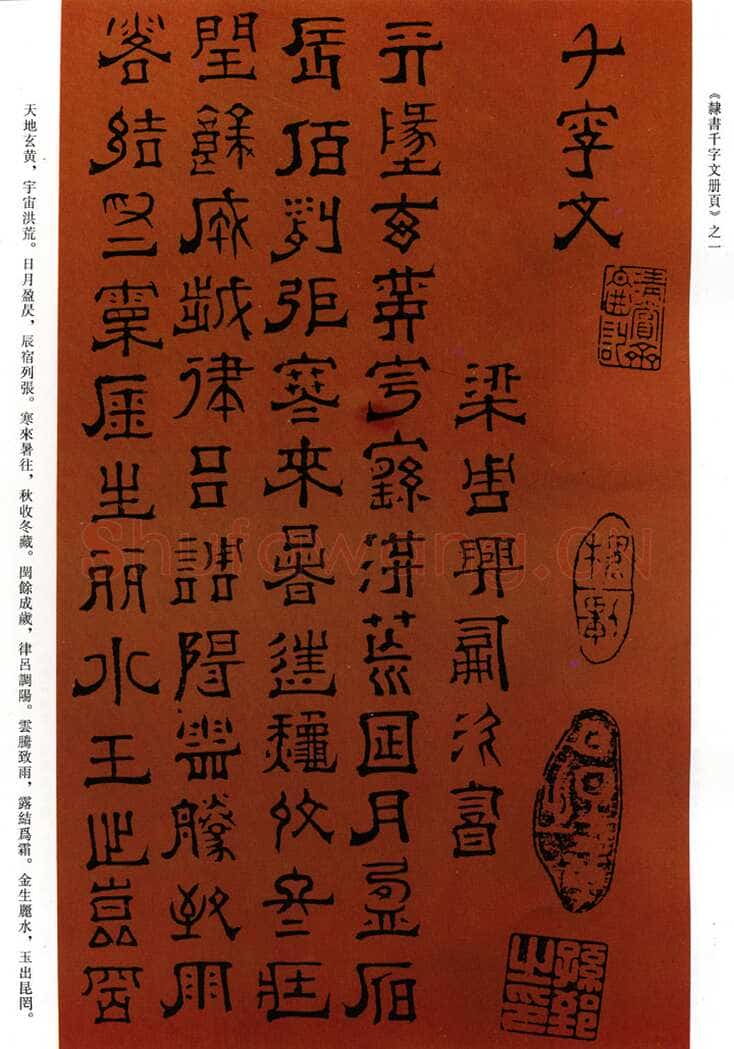 《隸書千字文册頁》之一
千字文
梁周興嗣次書
天地玄黄宇宙洪荒日月盈昃
辰宿列張寒來暑往秋收冬藏
閏餘成歲律吕調陽雲騰致雨
露結爲霜金生麗水玉出崑岡
天地玄黄，宇宙洪荒。日月盈昃，辰宿列張。寒來暑往，秋收冬藏。閏餘成歲，律呂調陽。雲騰致雨，露結爲霜。金生麗水，玉出昆罔。
Shufawang.CN